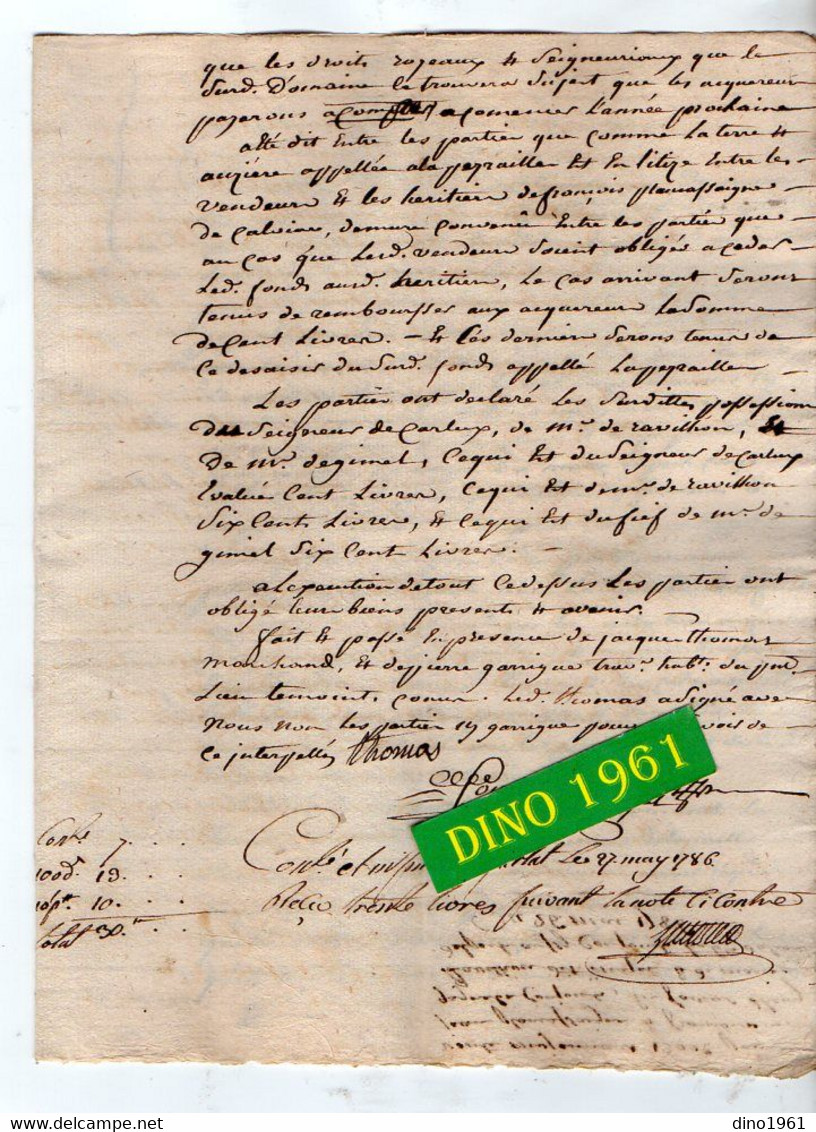 que les droits royeaux & seigneuriaux que le
surd. Domaine ce trouvera sujest que les acquereur
payerons a compter a comencer l'année prochaine
a été dit Entre les partien que comme la terre &
auziére appellée a la peyraillen Est En litize Entre les
vendeurs & les heritien de françois planassaigne
de Calviac, demure convenû Entre les partie que
au cas que lesd. vendeurs soient obligés a ceder
led. fond aud. heritien, le cas arrivant serons
tenus de rembourser aux acquereur la somme
de Cent Livres. — & Ces dernien serons tenus de
ce desaisir du surd. fond appellé Lapeyraillen
Les partien ont declaré les susdittes possessions
du seigneur de Carlux, de Mr. de ravilhon, &
De Mr. de gimel, Ce qui Est du seigneur de Carlux
Evalué Cent Livres, Ce qui Est de mr. de ravilhon
Six Cent Livres, & Ce qui Est du fief de Mr. de
gimel Six Cent Livres. —
a Lexecution de tout Ce dessus Les partien ont
obligé leur biens presents & avenir.
fait & passé En presence de jacque thomas
marchand, & de pierre garrigue trav.r hab.t du pnt.
Lieu temoint conus. Led. thomas a signé avec
Nous non les partien ny garrigue pour savoir de
ce interpellés thomas
Conlé et le 27 may 1786
Reçu trente livres suivant la note Ci Contre
7
13
10
total 30
DINO 1961
dino1961